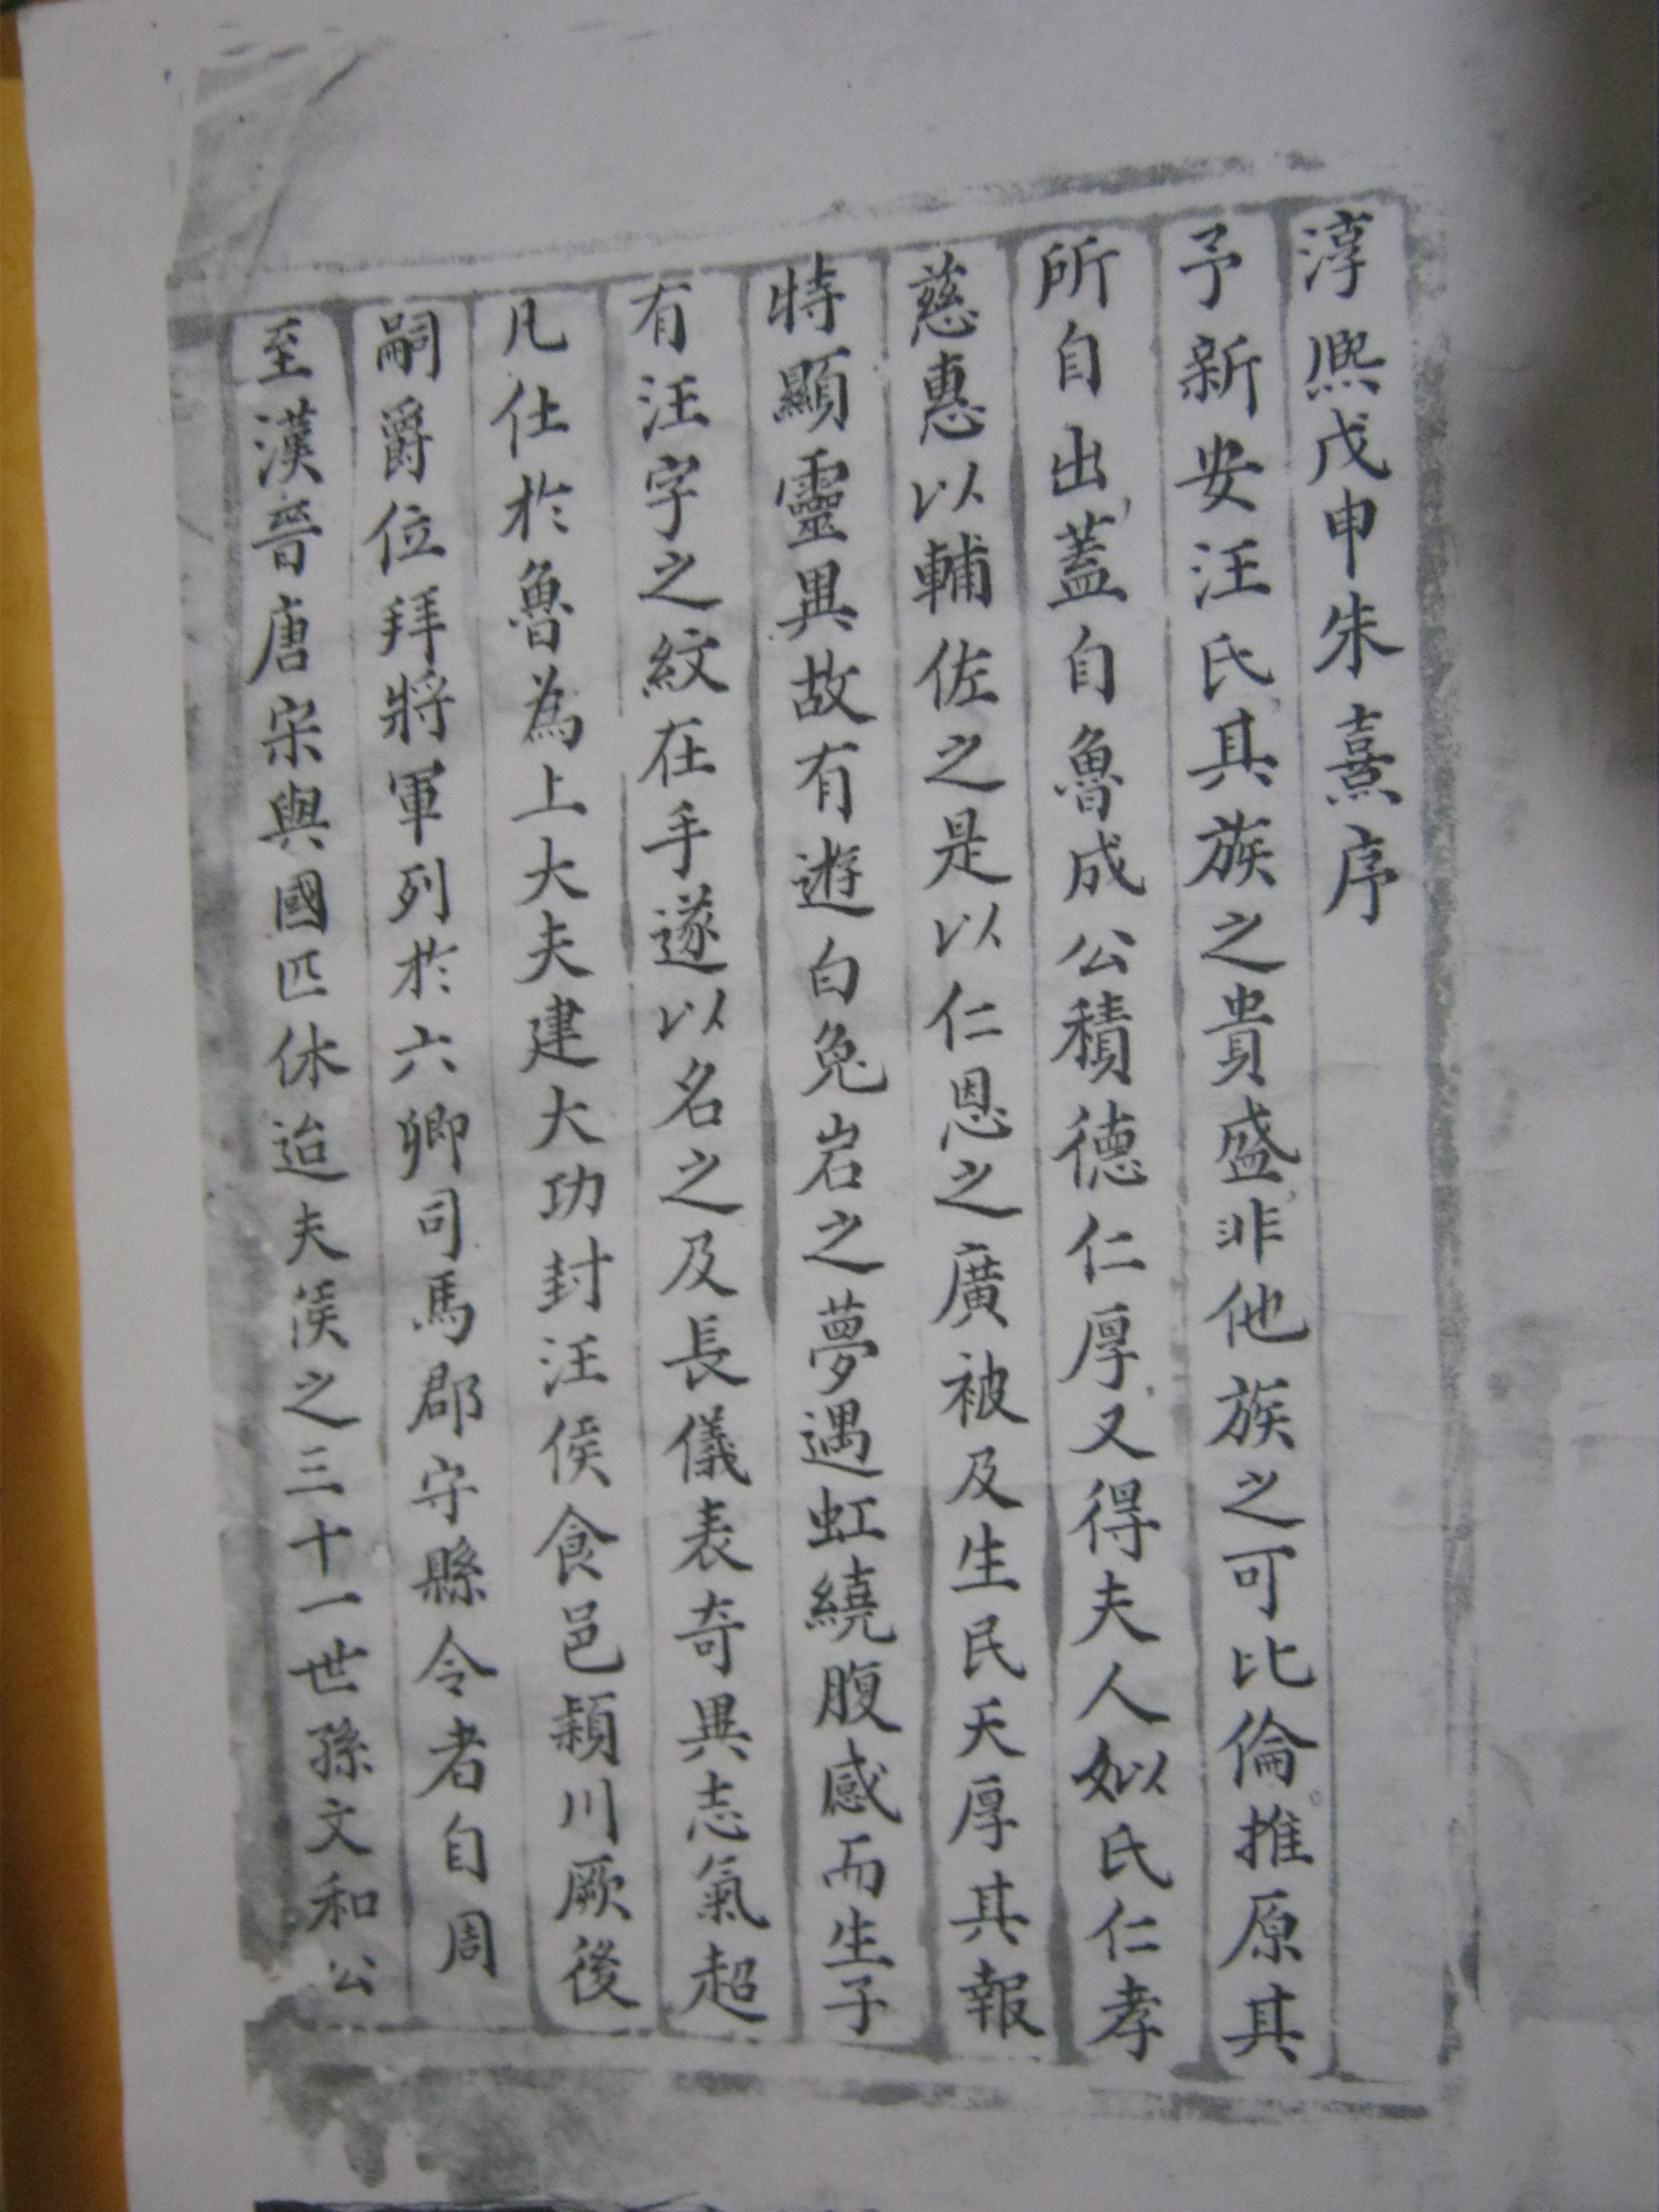 淳熈戊申朱熹序
予新安汪氏其族之貴盛非他族之可比倫推原其
所自出蓋自魯成公積德仁厚又得夫人姒氏仁孝
慈惠以輔佐之是以仁恩之廣被及生民天厚其報
特顯靈異故有遊白兔岩之夢遇虹繞腹感而生子
有汪字之紋在手遂以名之及長儀表奇異志氣超
凡仕於魯為上大夫建大功封汪侯食邑潁川厥後
嗣爵位拜將軍列於六卿司馬郡守縣令者自周
至漢晉唐宋與國匹休迨夫侯之三十一世孫文和公